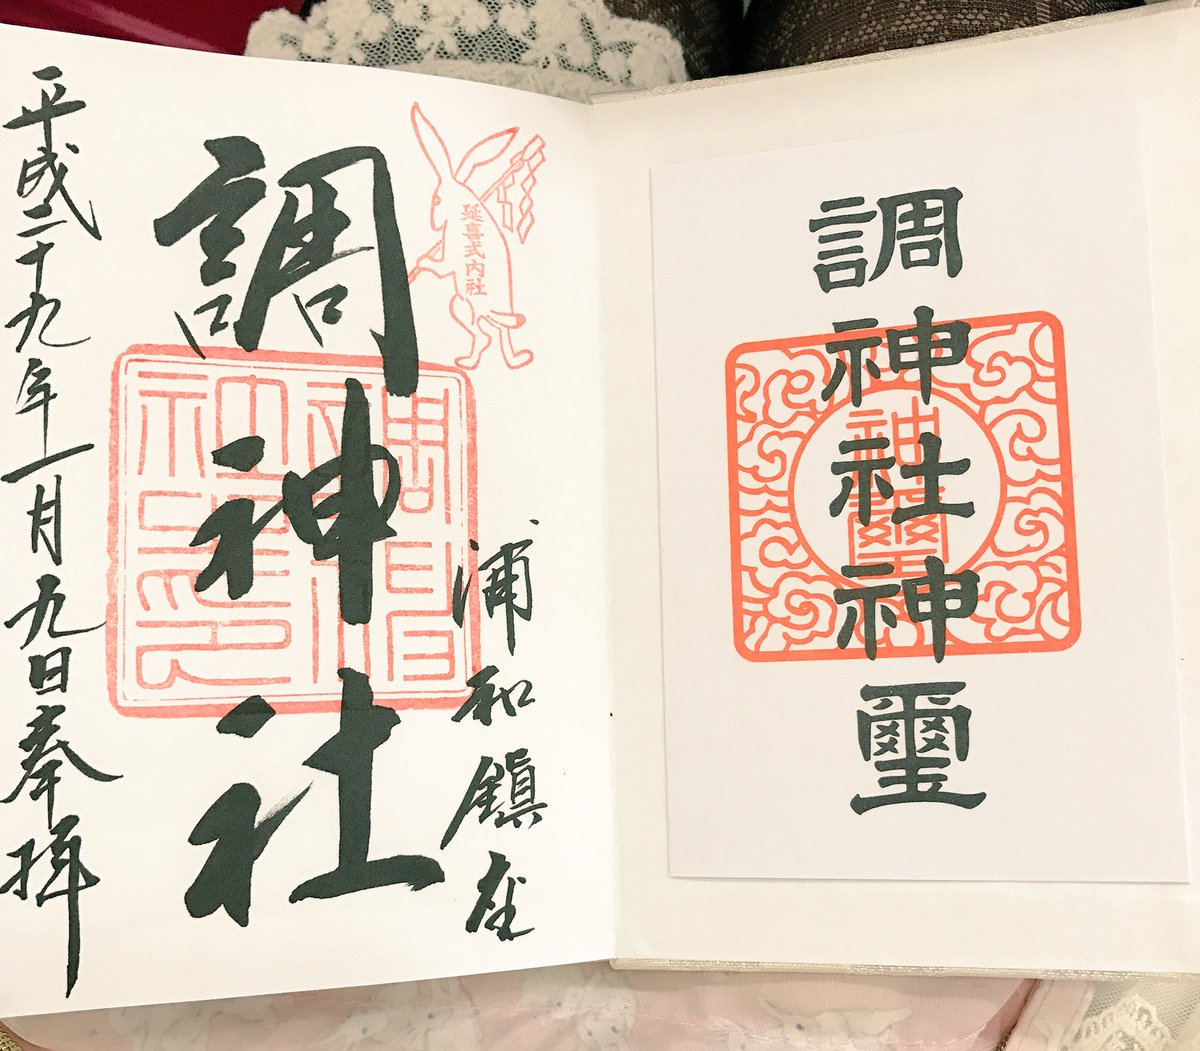 調神社神璽
神璽
延喜式内社
浦和鎮座
調神社
平成二十九年一月九日奉拝